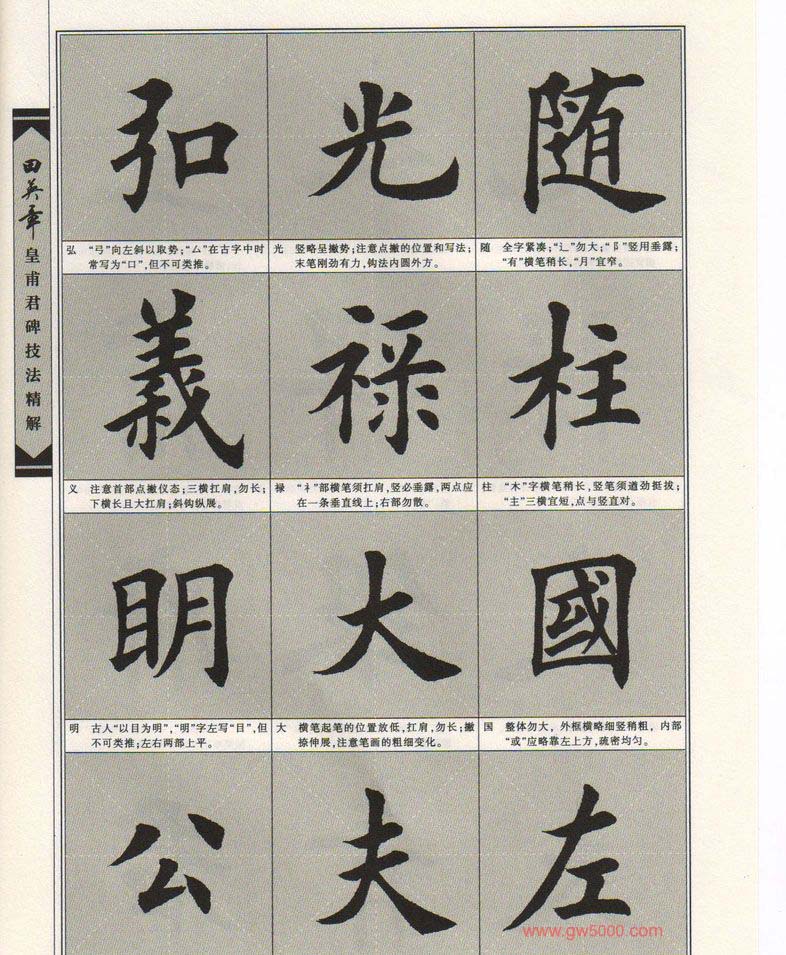 随
随 全字紧凑；“辶”勿大；“阝”竖用垂露；
“有”横笔稍长，“月”宜窄。
柱
柱 “木”字横笔稍长，竖笔须遒劲挺拔；
“主”三横宜短，点与竖直对。
國
国 整体勿大，外框横略细竖稍粗，内部
“或”应略靠左上方，疏密均匀。
左
光
光 竖略呈撇势；注意点撇的位置和写法；
末笔刚劲有力，钩法内圆外方。
禄
禄 “礻”部横笔须扛肩，竖必垂露，两点应
在一条垂直线上；右部勿散。
大
大 横笔起笔的位置放低，扛肩，勿长；撇
捺伸展，注意笔画的粗细变化。
夫
弘
弘 “弓”向左斜以取势；“厶”在古字中时
常写为“口”，但不可类推。
義
义 注意首部点撇仪态；三横扛肩，勿长；
下横长且大扛肩；斜钩纵展。
眀
明 古人“以目为明”，“明”字左写“目”，但
不可类推；左右两部上平。
公
田英章皇甫君碑技法精解
www.gw5000.com